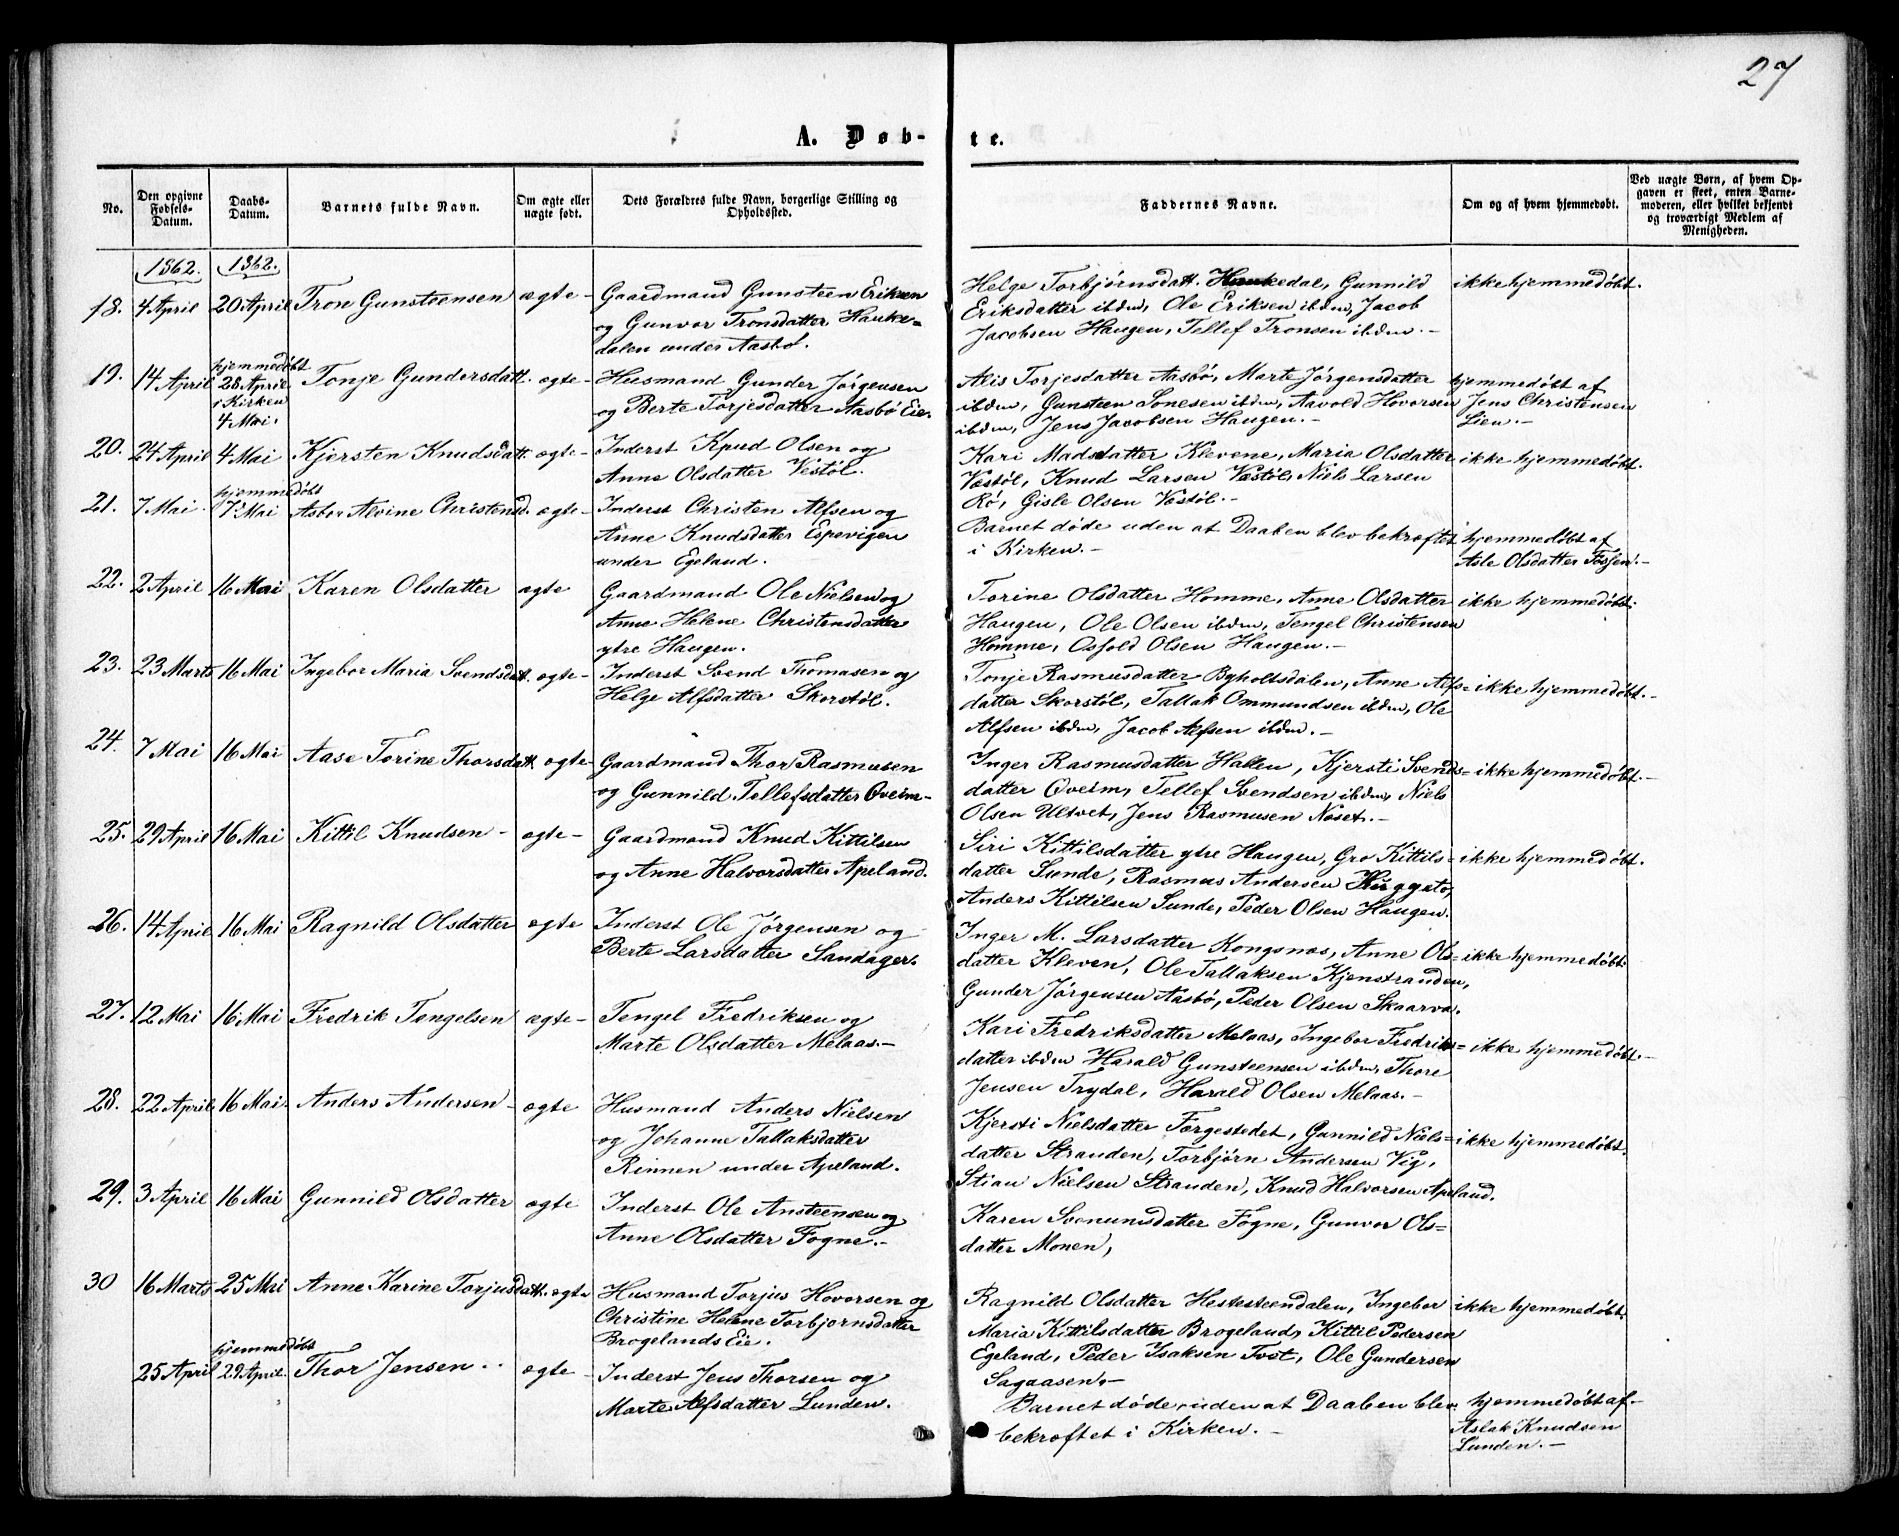 27
A. Døb-te.
No.
Den opgivne Fødsels-Datum.
Daabs-Datum.
Barnets fulde Navn.
Om ægte eller uægte født.
Dets Forældres fulde Navn, borgerlige Stilling og Opholdssted.
Faddernes Navne.
Om og af hvem hjemmedøbt.
Ved uægte Børn, af hvem Opgaven er skeet, enten Barnemoderen, eller hvilket bekjendt og troværdigt Medlem af Menigheden.
1862. 1862.
18. 4 April 20 April Tron Gunsteensen ægte-
Gaardmand Gunsteen Eriksen
og Gunvor Tronsdatter Hauke=
dalen under Aasbø.
Helge Torbjørnsdatt. Haukedal, Gunnild
Eriksdatter ibdm, Ole Eriksen ibdm, Jacob
Jacobsen Haugen, Tellef Tronsen ibdm.-
ikke hjemmedøbt.
19. 14 April hjemmedøbt
28 April
i Kirken
4 Mai.
Tonje Gundersdatt. ægte-
Husmand Gunder Jørgensen
og Berte Torjesdatter Aasbø Eie.
Alis Torjesdatter Aasbø, Marte Jørgensdatter
ibdm, Gunsteen Sonesen ibdm, Aavold Hovorsen
ibdm, Jens Jacobsen Haugen.-
hjemmedøbt af
Jens Christensen
Lien.-
20. 24 April 4 Mai Kjersten Knudsdatt. ægte-
Inderst Knud Olsen og
Anne Olsdatter Vestøl.
Kari Madsdatter Klevene, Maria Olsdatter
Væstøl, Knud Larsen Væstøl, Niels Larsen
Rø, Gisle Olsen Væstøl.-
ikke hjemmedøbt.
21. 7 Mai. hjemmedøbt
7 Mai Asbor Alvine Christensd. ægte-
Inderst Christen Alfsen og
Anne Knudsdatter Espevigen
under Egeland.
Barnet døde uden at Daaben blev bekræftet
i Kirken.-
hjemmedøbt af
Asle Olsdatter Fosjen.-
22. 2 April 16 Mai Karen Olsdatter ægte
Gaardmand Ole Nielsen og
Anne Helene Christensdatter
ytre Haugen.
Torine Olsdatter Homme, Anne Olsdatter
Haugen, Ole Olsen ibdm, Tengel Christensen
Homme, Osfold Olsen Haugen.-
ikke hjemmedøbt.
23. 23 Marts 16 Mai Ingebor Maria Svendsdatt. ægte-
Inderst Svend Thomasen og
Helge Alfsdatter Skorstøl.
Tonje Rasmusdatter Bgholtsdalen, Anne Alfs=
datter Skorstøl, Tallak Ommundsen ibdm, Ole
Alfsen ibdm, Jacob Alfsen ibdm.-
ikke hjemmedøbt.-
24. 7 Mai 16 Mai Aase Torine Thorsdatt. ægte-
Gaardmand Thor Rasmusen
og Gunnild Tellefsdatter Øveim-
Inger Rasmusdatter Halten, Kjersti Svends=
datter Øveim, Tellef Svendsen ibdm, Niels
Olsen Ultvet, Jens Rasmusen Næset.-
ikke hjemmedøbt.-
25. 29 April 16 Mai Kittil Knudsen- ægte-
Gaardmand Knud Kittilsen
og Anne Halvorsdatter Apeland.
Siri Kittilsdatter ytre Haugen, Gro Kittils=
datter Sunde, Rasmus Andersen
Anders Kittilsen Sunde, Peder Olsen Haugen.
ikke hjemmedøbt.
26. 14 April 16 Mai Ragnild Olsdatter ægte
Inderst Ole Jørgensen og
Berte Larsdatter Sandager.
Inger M. Larsdatter Kongsnæs, Anne Ols=
datter Kleven, Ole Tallaksen Kjenstranden,
Gunder Jørgensen Aasbø, Peder Olsen Skaarva.
ikke hjemmedøbt.
27. 12 Mai 16 Mai Fredrik Tengelsen ægte-
Tengel Fredriksen og
Marte Olsdatter Melaas.-
Kari Fredriksdatter Melaas, Ingebor Fredriks=
datter ibdm Harald Gunsteensen ibdm, Thore
Jensen Trydal, Harald Olsen Melaas.-
ikke hjemmedøbt.-
28. 22 April 16 Mai. Anders Andersen- ægte
Husmand Anders Nielsen
og Johanne Tallaksdatter
Rinnen under Apeland.
Kjersti Nielsdatter Færgestedet, Gunnild Niels=
datter Stranden, Torbjørn Andersen Vig,
Stian Nielsen Stranden, Knud Halvorsen Apeland.
ikke hjemmedøbt.
29. 3 April 16 Mai Gunnild Olsdatter ægte
Inderst Ole Ansteensen og
Anne Olsdatter Fogne.-
Karen Svenumsdatter Fogne, Gunvor Ols=
datter Monen,
30 16 Marts 25 Mai Anne Karine Torjusdatt. ægte
Husmand Torjus Hovorsen og
Christine Helene Torbjornsdatter
Brogelands Eie.
Ragnild Olsdatter Hestesteendalen, Ingebor
Maria Kittilsdatter Brogeland, Kittil Pedersen
Egeland, Peder Isaksen Tvet, Ole Gundersen
Sagaasen.-
ikke hjemmedøbt.
25 April hjemmedøbt
29 April. Thor Jensen.. ægte-
Inderst Jens Thorsen og
Marte Alfsdatter Lunden.
Barnet døde, uden at Daaben blev
bekræftet i Kirken.-
hjemmedøbt af-
Aslak Knudsen
Lunden.-